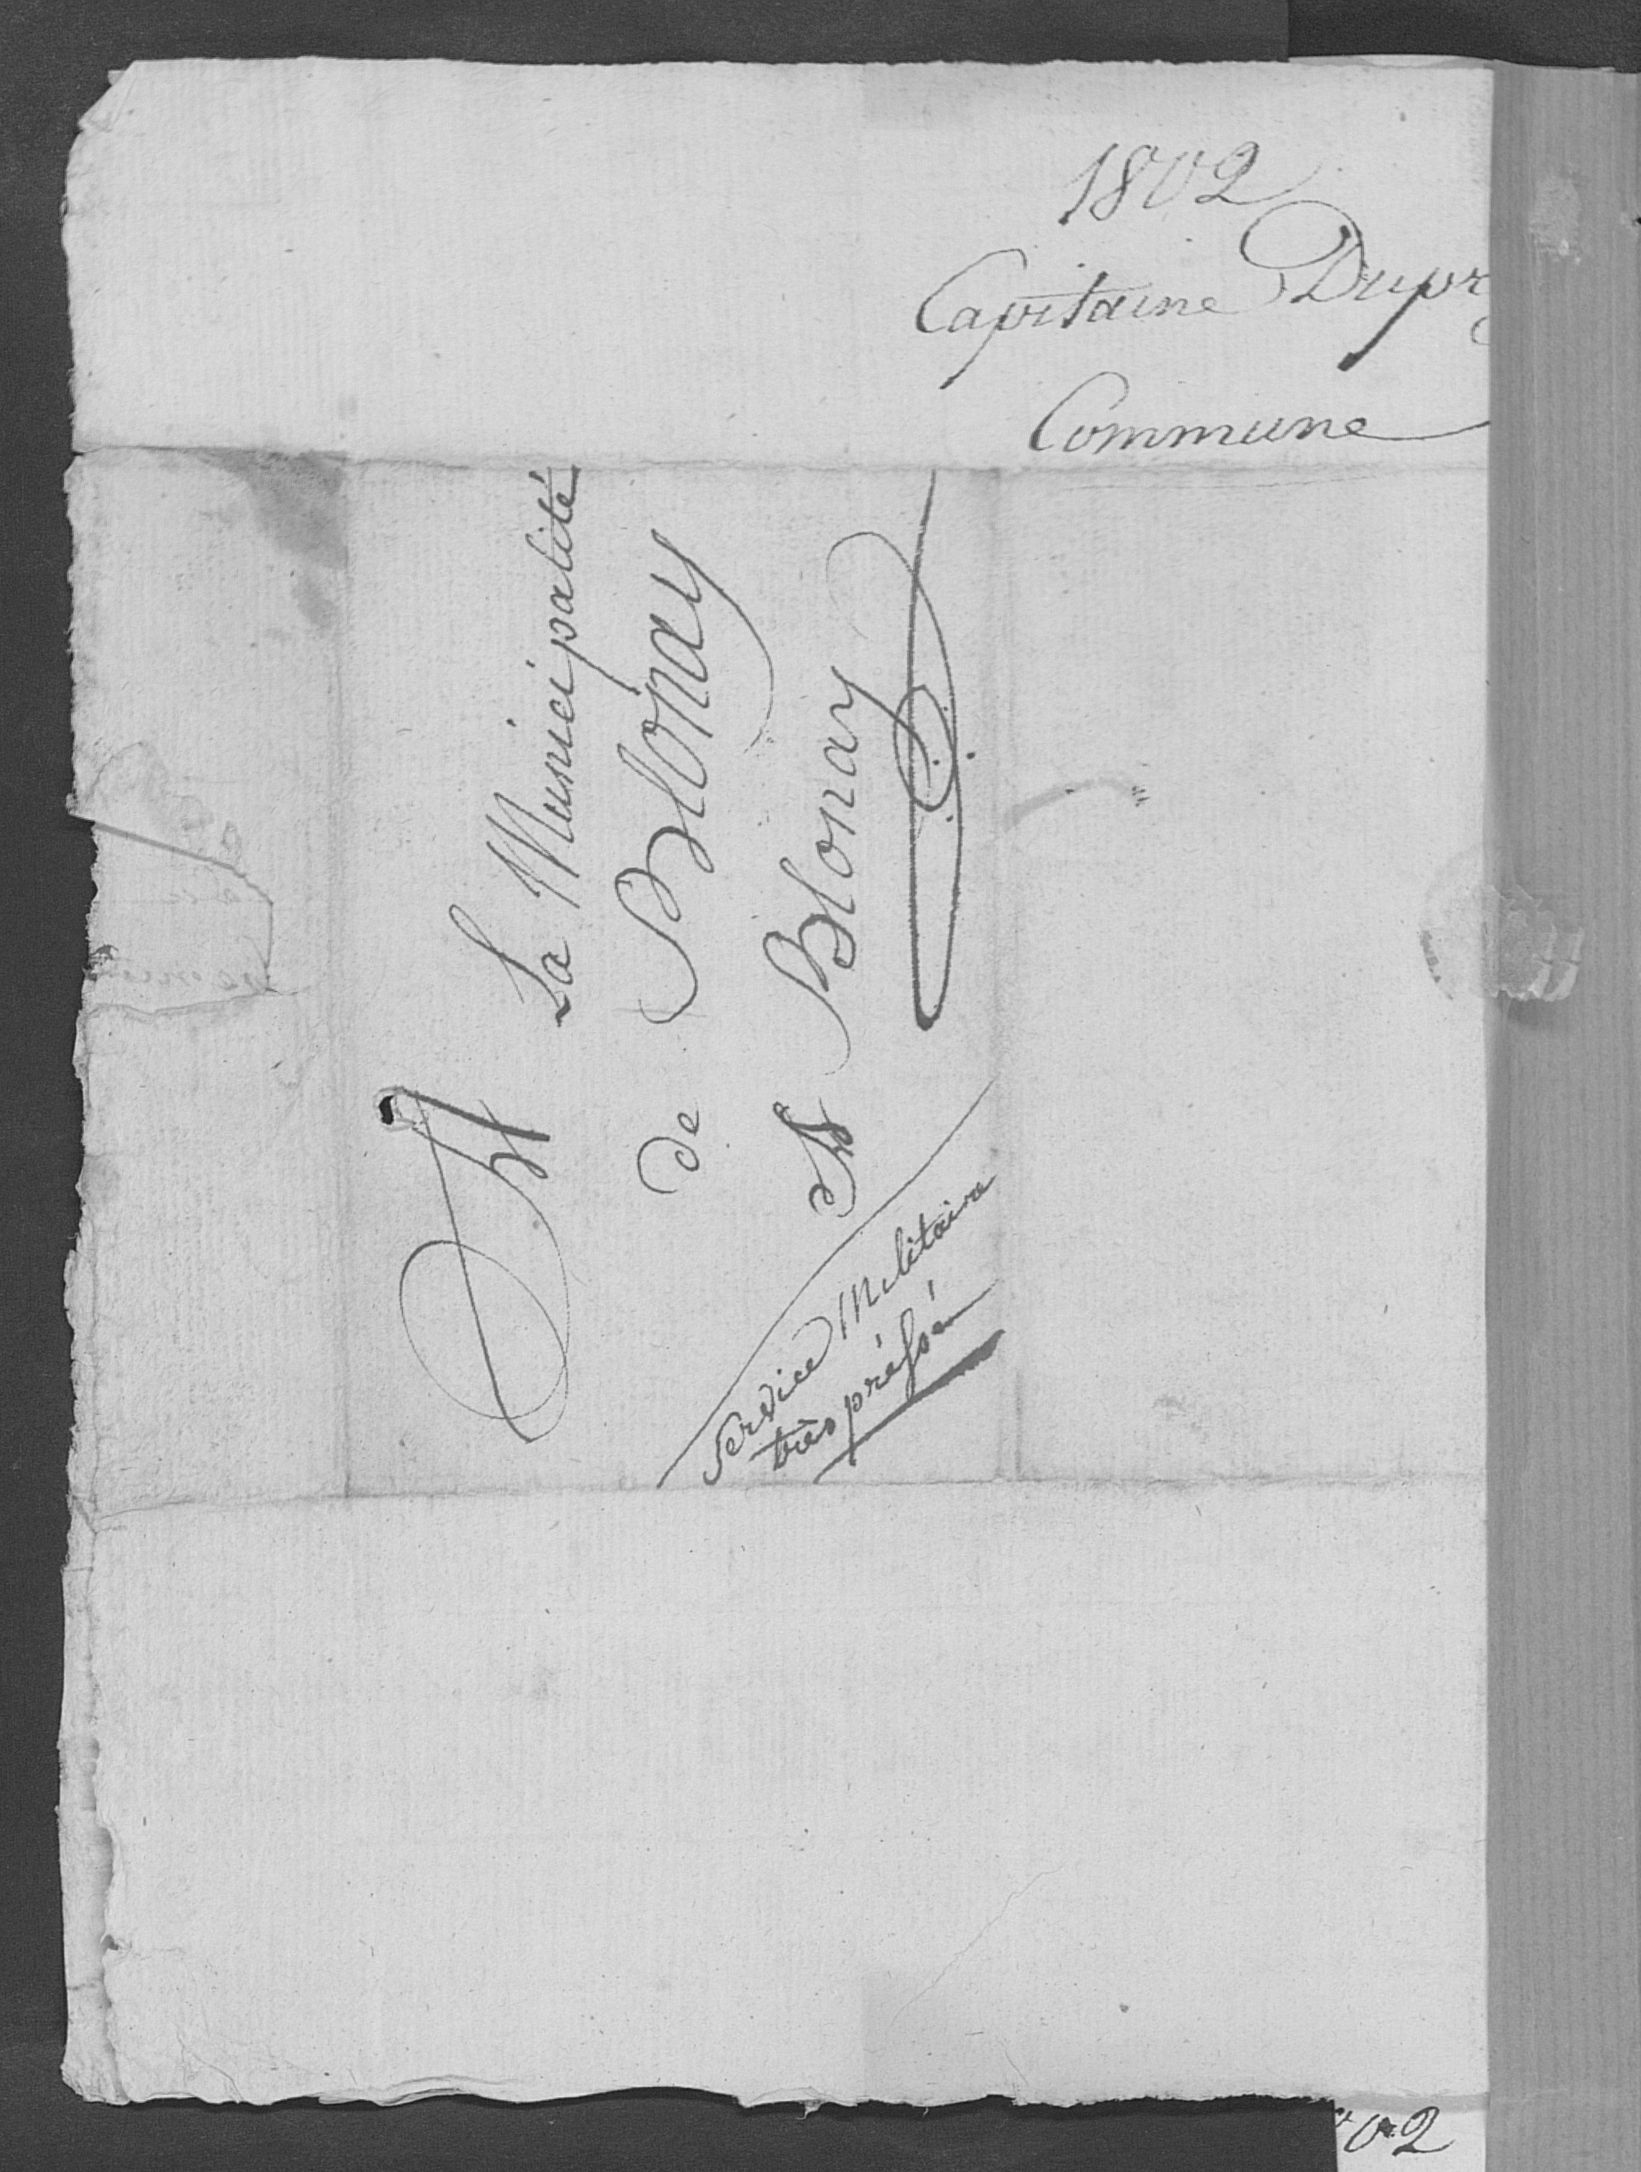 1802
Capitaine Dupr
Commune
A
La Municipalité
de Blonay
A Blonay
Service Militaire
très préssé
02